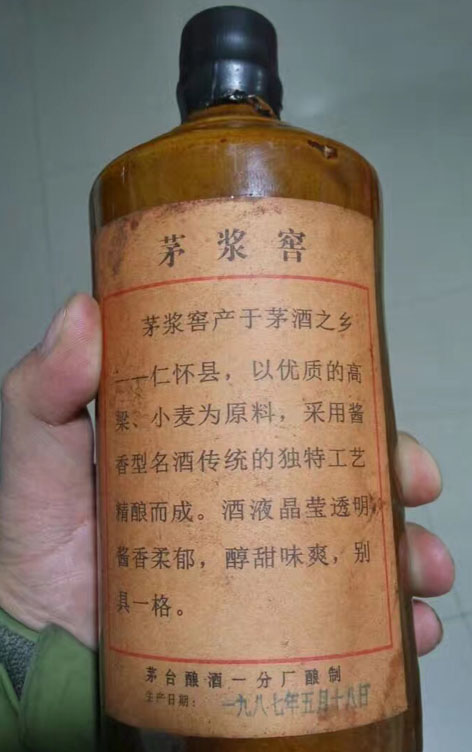 茅浆窖
茅浆窖产于茅酒之乡
——仁怀县，以优质的高
粱、小麦为原料，采用酱
香型名酒传统的独特工艺
精酿而成。酒液晶莹透明
酱香柔郁，醇甜味爽，别
具一格。
茅台酿酒一分厂酿制
生产日期：一九八七年五月十八日